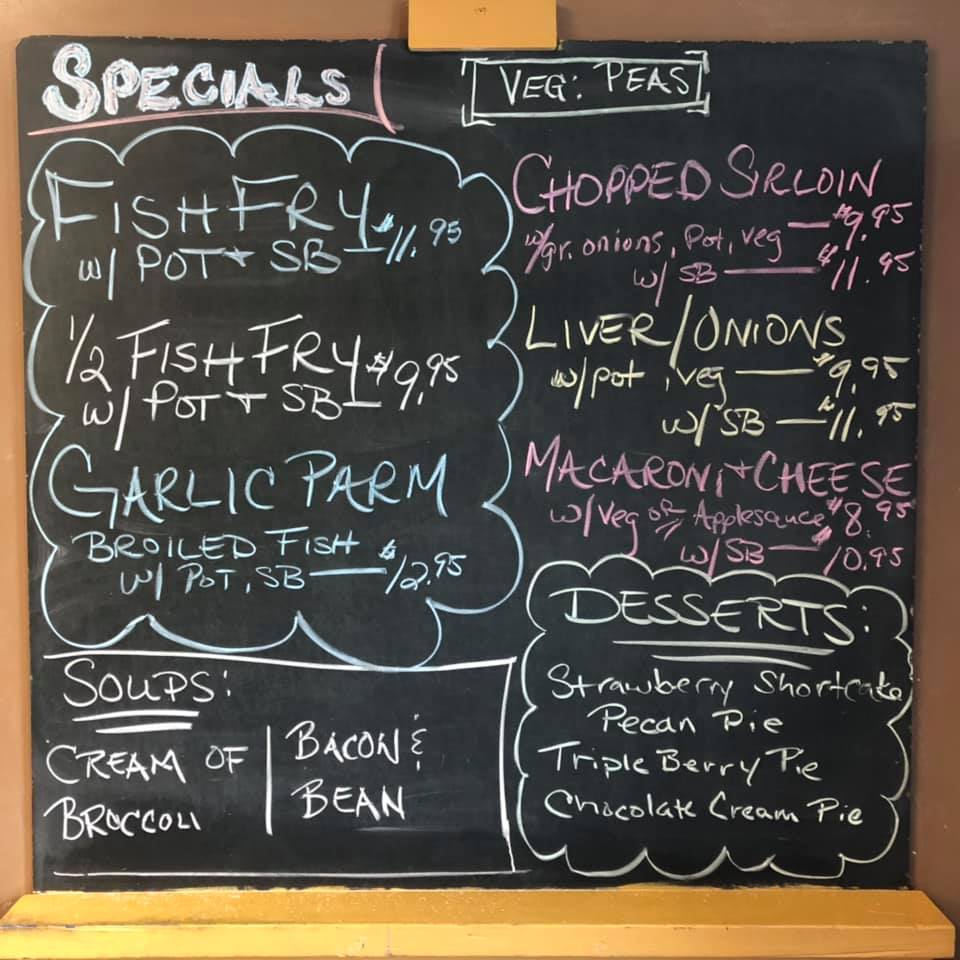 SPECIALS
VEG: PEAS
FISH FRY
w/ POT + SB — $11.95
1/2 FISH FRY $9.95
w/ POT + SB —
GARLIC PARM
BROILED FISH
w/ POT, SB — $12.95
CHOPPED SIRLOIN
w/gr. onions, Pot, veg — $9.95
w/ SB — $11.95
LIVER/ONIONS
w/pot, veg — $9.95
w/ SB — $11.95
MACARONI + CHEESE
w/Veg or Applesauce $8.95
w/ SB — $10.95
SOUPS:
CREAM OF
BROCCOLI
BACON &
BEAN
DESSERTS:
Strawberry Shortcake
Pecan Pie
Triple Berry Pie
Chocolate Cream Pie